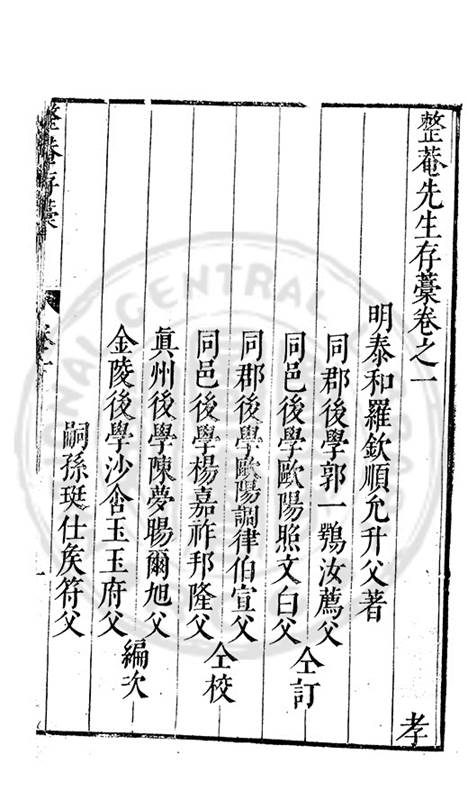 整菴先生存藁卷之一
明泰和羅欽順允升父著
同郡後學郭一鶚汝薦父
同邑後學歐陽照文白父
仝訂
同郡後學歐陽調律伯宣父
同邑後學楊嘉祚邦隆父
仝校
真州後學陳夢暘爾旭父
金陵後學沙舍玉玉府父
編次
嗣孫珽仕矦符父
孝
整菴存藁
卷一
一
NATIONAL CENTRAL